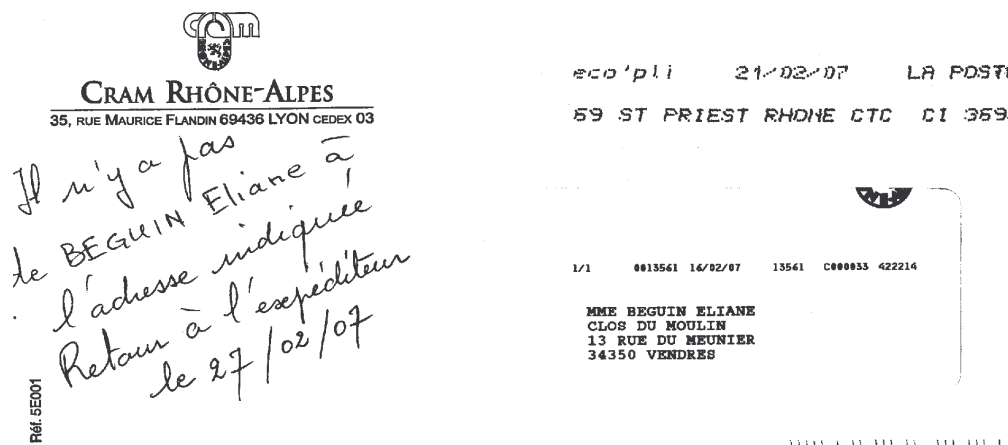 cram
CRAM RHÔNE-ALPES
35, RUE MAURICE FLANDIN 69436 LYON CEDEX 03
Il n'y a pas
de BEGUIN Eliane à
l'adresse indiquée
Retour à l'expéditeur
le 27/02/07
Réf. 5E001
eco'pli 21/02/07 LA POSTE
69 ST PRIEST RHONE CTC CI 369
1/1 0013561 16/02/07 13561 C000033 422214
MME BEGUIN ELIANE
CLOS DU MOULIN
13 RUE DU MEUNIER
34350 VENDRES